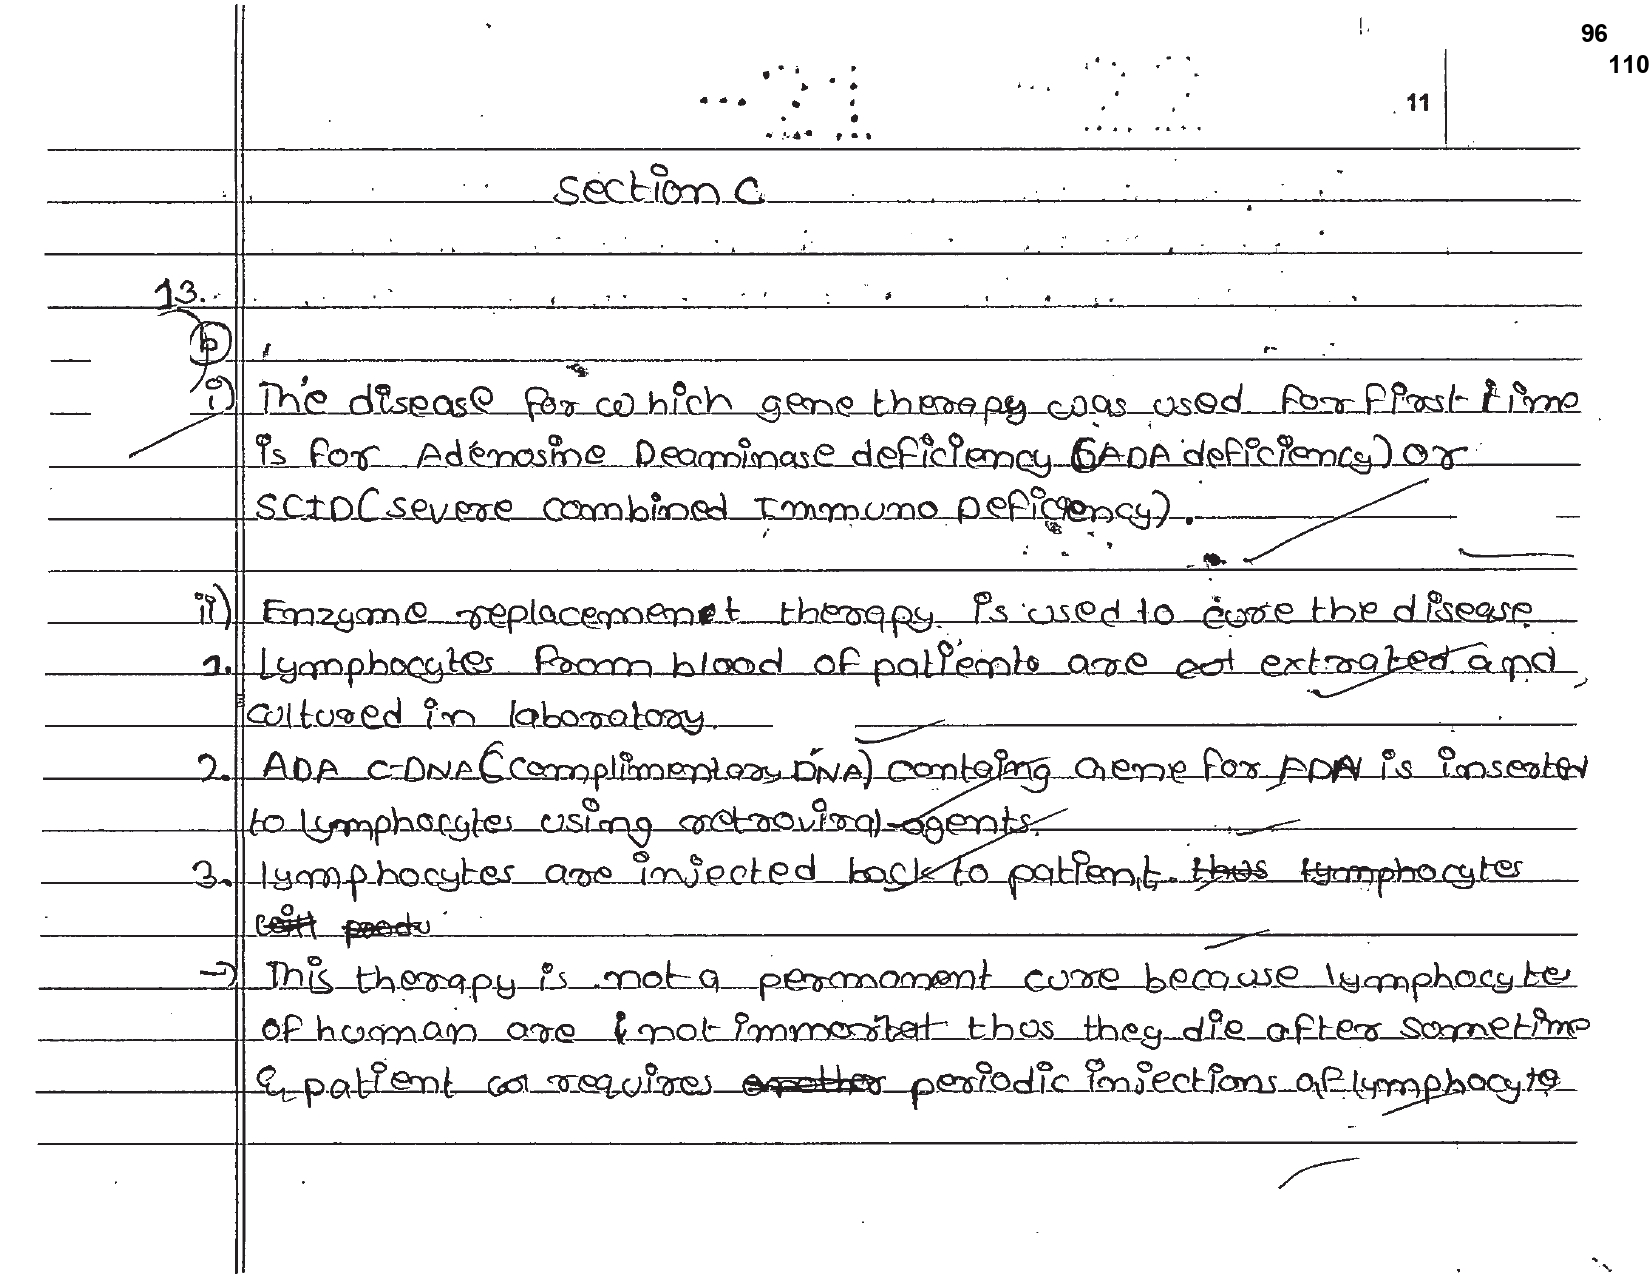 96
110
-21 -22
11
Section C
13.
b
i) The disease for which gene therapy was used for first time
is for Adenosine Deaminase deficiency (ADA deficiency) or
SCID (severe combined Immuno Deficiency).
ii) Enzyme replacement therapy is used to cure the disease
1. Lymphocytes from blood of patients are extrated and
cultured in laboratory.
2. ADA C-DNA (complimentary DNA) containg gene for ADA is inserted
to lymphocytes using retroviral agents.
3. lymphocytes are injected back to patient. thus lymphocytes
will produ
→ This therapy is not a permanent cure because lymphocyte
of human are not immortal thus they die after sometime
& patient requires another periodic injections of lymphocyte